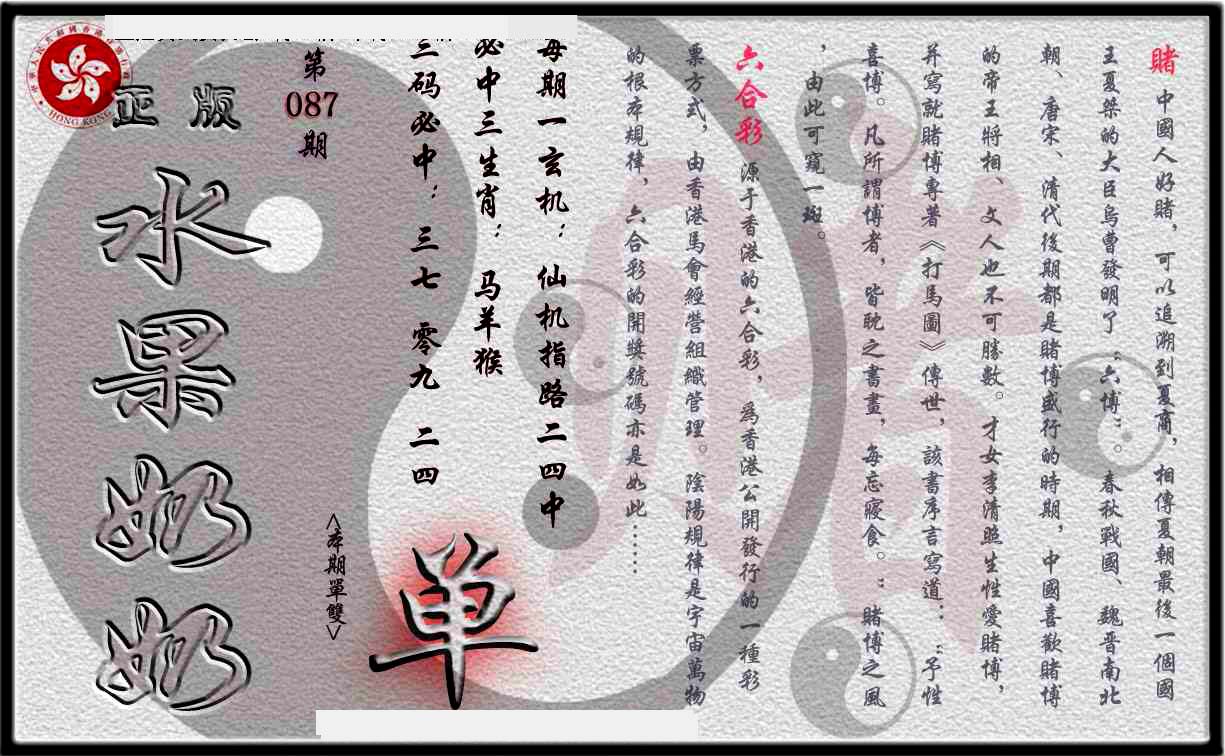 賭 中國人好賭，可以追溯到夏商，相傳夏朝最後一個國
王夏桀的大臣烏曹發明了“六博”。春秋戰國、魏晋南北
朝、唐宋、清代後期都是賭博盛行的時期，中國喜歡賭博
的帝王將相、文人也不可勝數。才女李清照生性愛賭博，
并寫就賭博專著《打馬圖》傳世，該書序言寫道：“予性
喜博。凡所謂博者，皆耽之書畫，每忘寢食。”賭博之風
，由此可窺一斑。
六合彩 源于香港的六合彩，爲香港公開發行的一種彩
票方式，由香港馬會經營組織管理。陰陽規律是宇宙萬物
的根本規律，六合彩的開獎號碼亦是如此……
每期一玄机：仙机指路二四中
必中三生肖：马羊猴
三码必中：三七 零九 二四
第
087
期
<本期單雙>
单
正版
水果奶奶
HONG KONG